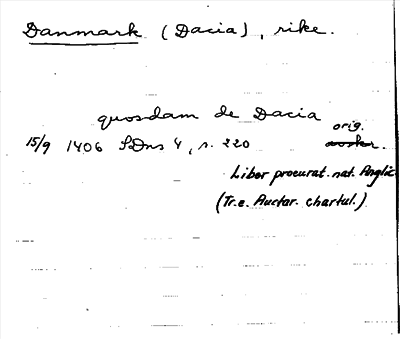 Danmark (Dacia), rike.
quosdam de Dacia
orig.
15/9 1406 SDns 4, s. 220
Liber procurat. nat. Anglic
(Tr. e. Auctar. chartul.)